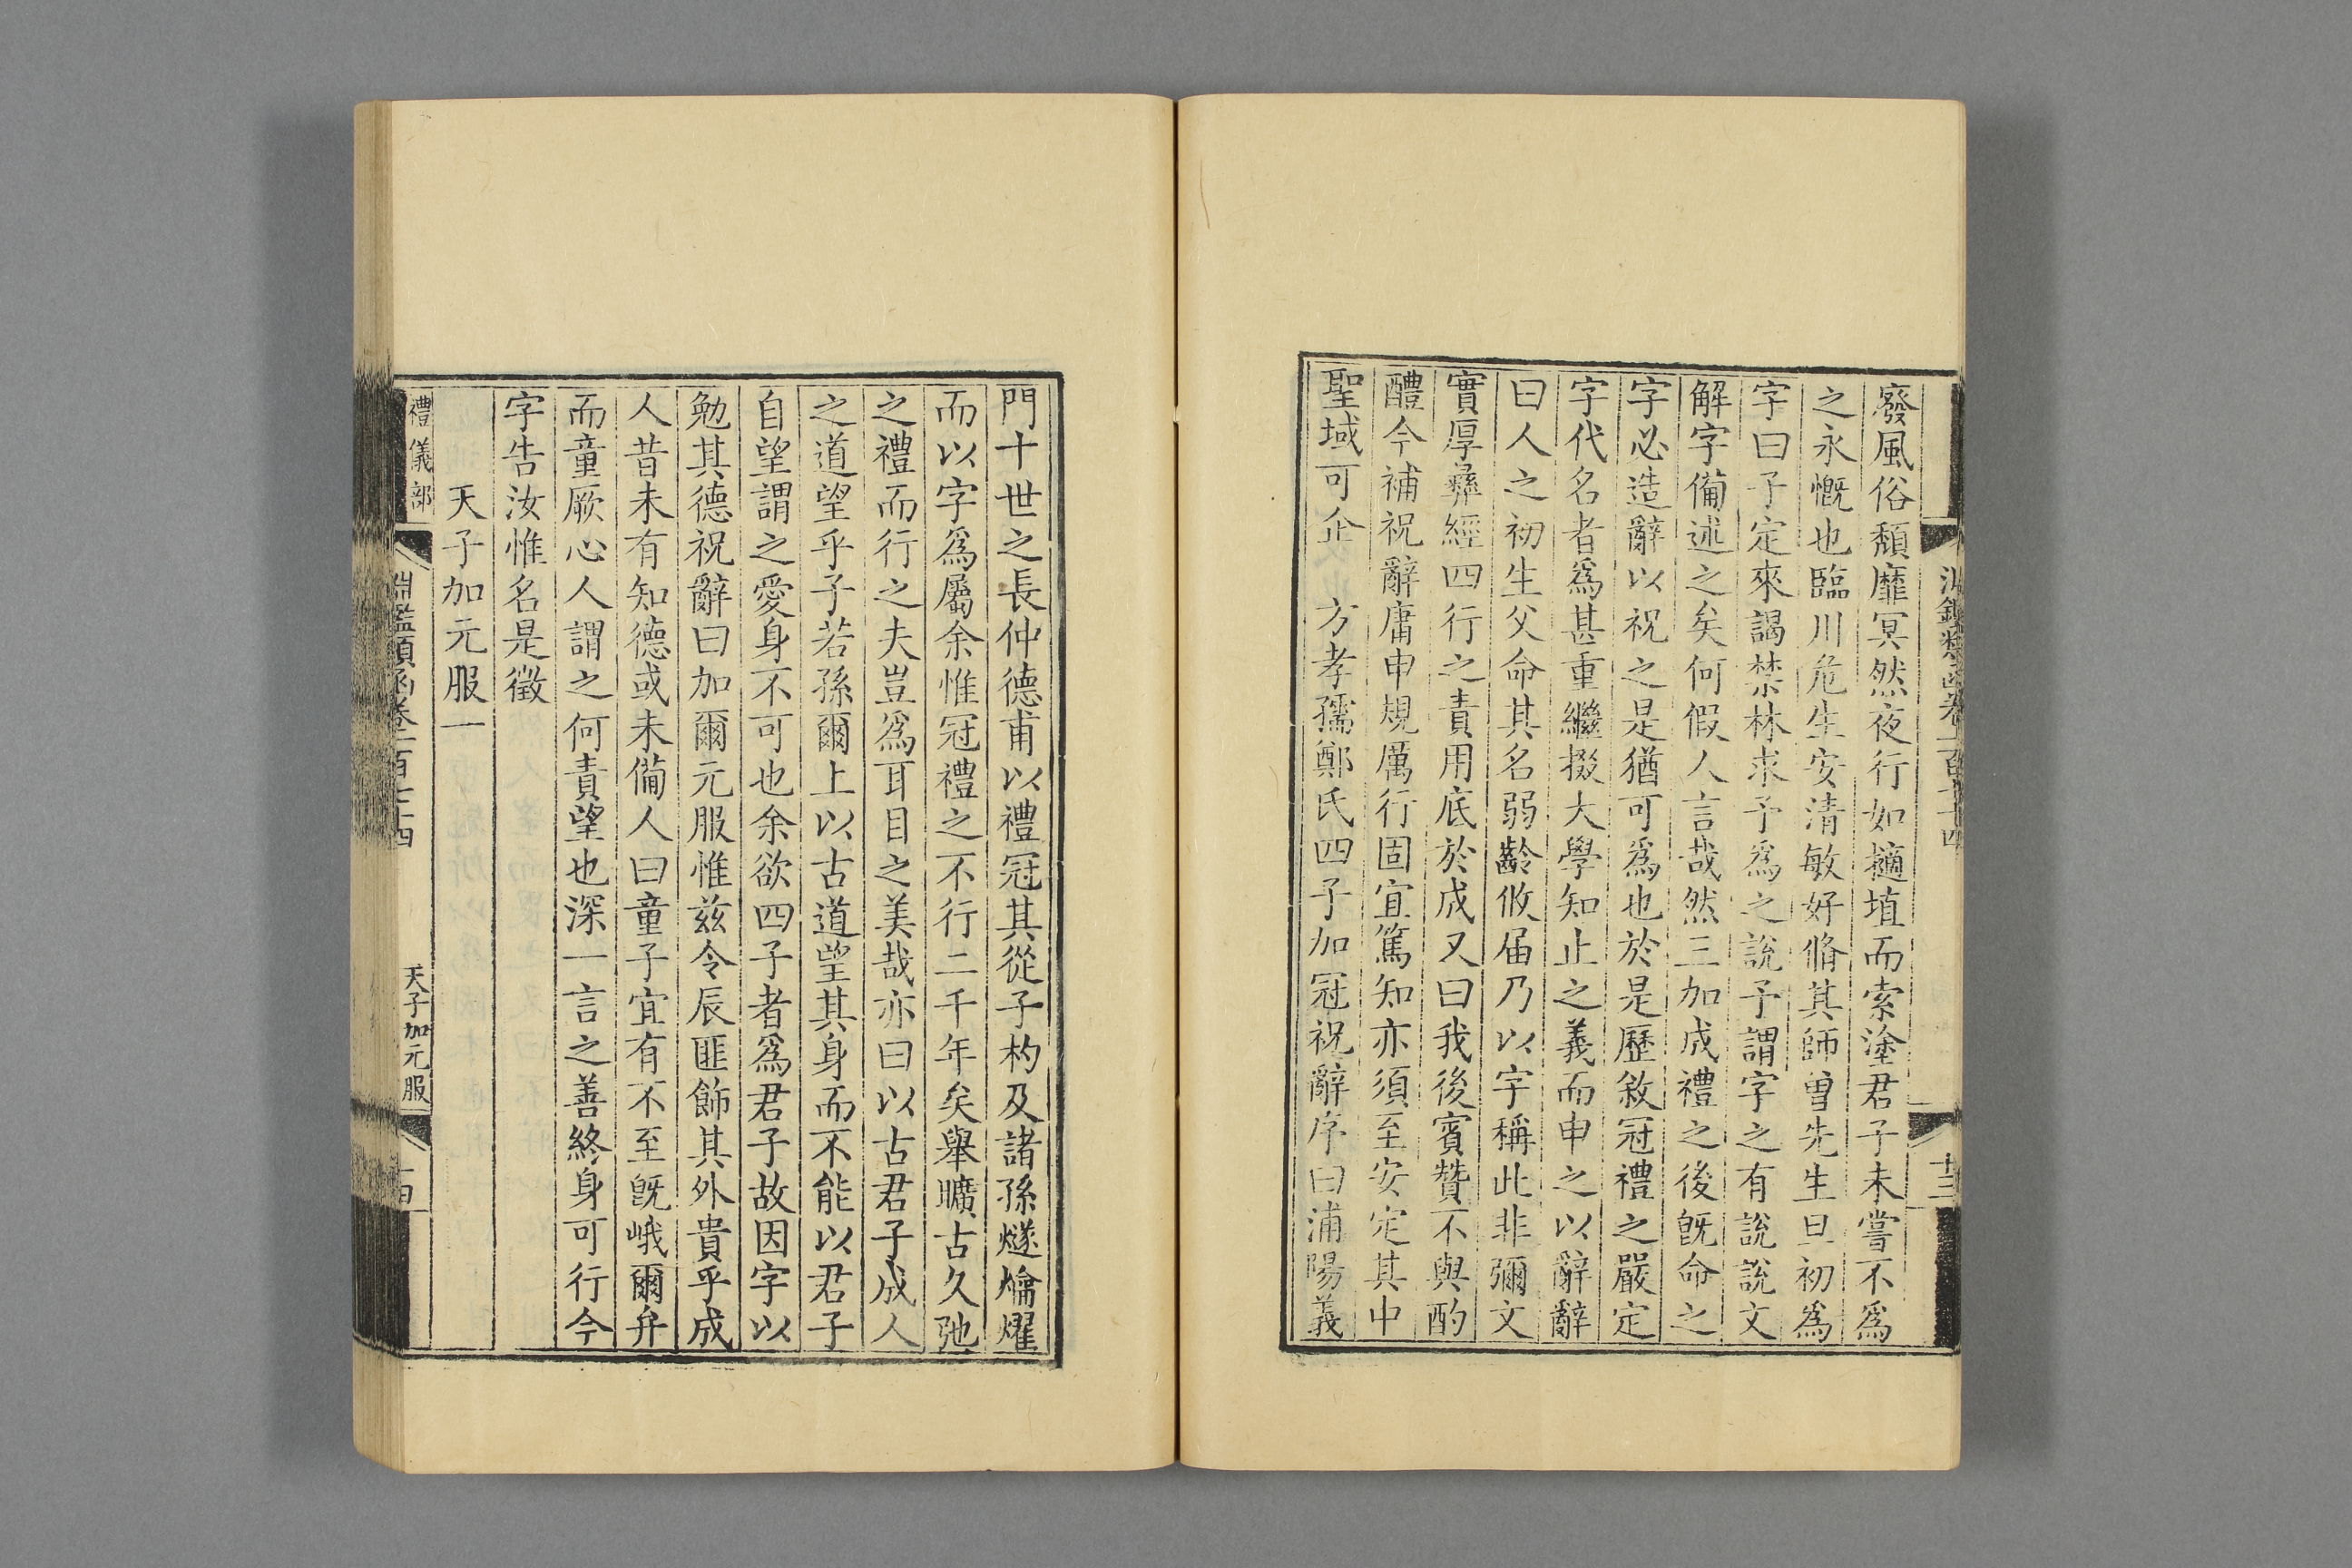 廢風俗頹靡冥然夜行如擿埴而索塗君子未嘗不爲
之永慨也臨川危生安清敏好脩其師曽先生旦初爲
字曰子定來謁禁林求予爲之說予謂字之有說說文
解字備述之矣何假人言哉然三加成禮之後旣命之
字必造辭以祝之是猶可爲也於是歷敘冠禮之嚴定
字代名者爲甚重繼掇大學知止之義而申之以辭辭
曰人之初生父命其名弱齡攸届乃以字稱此非彌文
實厚彞經四行之責用底於成又曰我後賓贊不與酌
醴今補祝辭庸申規厲行固宜篤知亦須至安定其中
聖域可企　方孝孺鄭氏四子加冠祝辭序曰浦陽義
門十世之長仲德甫以禮冠其從子杓及諸孫燧爚燿
而以字爲屬余惟冠禮之不行二千年矣舉曠古久弛
之禮而行之夫豈爲耳目之美哉亦曰以古君子成人
之道望乎子若孫爾上以古道望其身而不能以君子
自望謂之愛身不可也余欲四子者爲君子故因字以
勉其德祝辭曰加爾元服惟兹令辰匪飾其外貴乎成
人昔未有知德或未備人曰童子宜有不至旣峨爾弁
而童厥心人謂之何責望也深一言之善終身可行今
字告汝惟名是徵
天子加元服一
禮儀部
淵鑑類函卷一百七十四
天子加元服